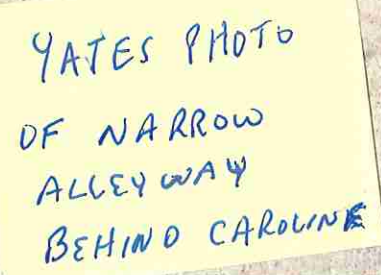 YATES PHOTO
OF NARROW
ALLEYWAY
BEHIND CAROLINE